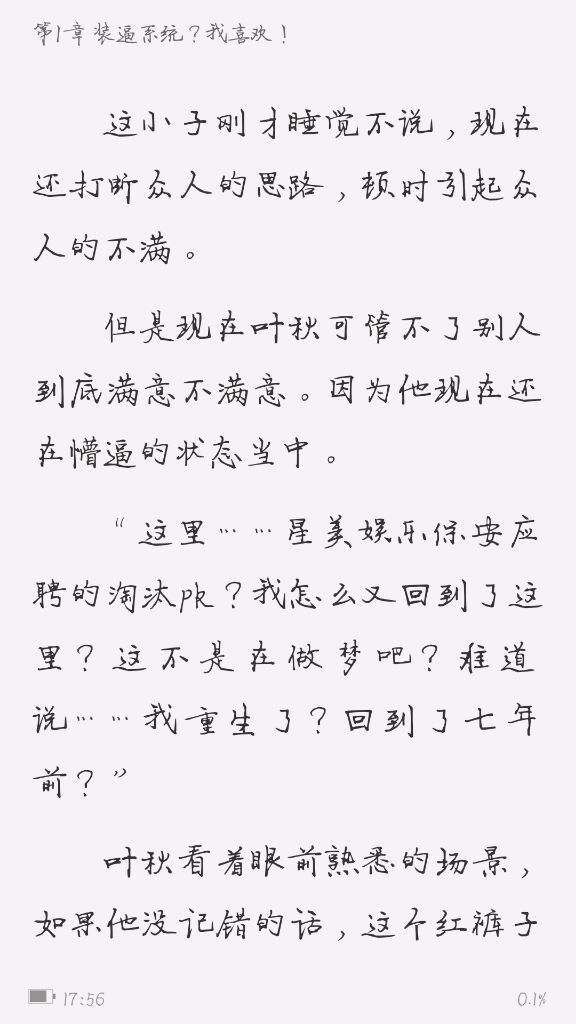 第1章 装逼系统？我喜欢！
这小子刚才睡觉不说，现在
还打断众人的思路，顿时引起众
人的不满。
但是现在叶秋可管不了别人
到底满意不满意。因为他现在还
在懵逼的状态当中。
“这里……星美娱乐保安应
聘的淘汰pk？我怎么又回到了这
里？这不是在做梦吧？难道
说……我重生了？回到了七年
前？”
叶秋看着眼前熟悉的场景，
如果他没记错的话，这个红裤子
17:56
0.1%